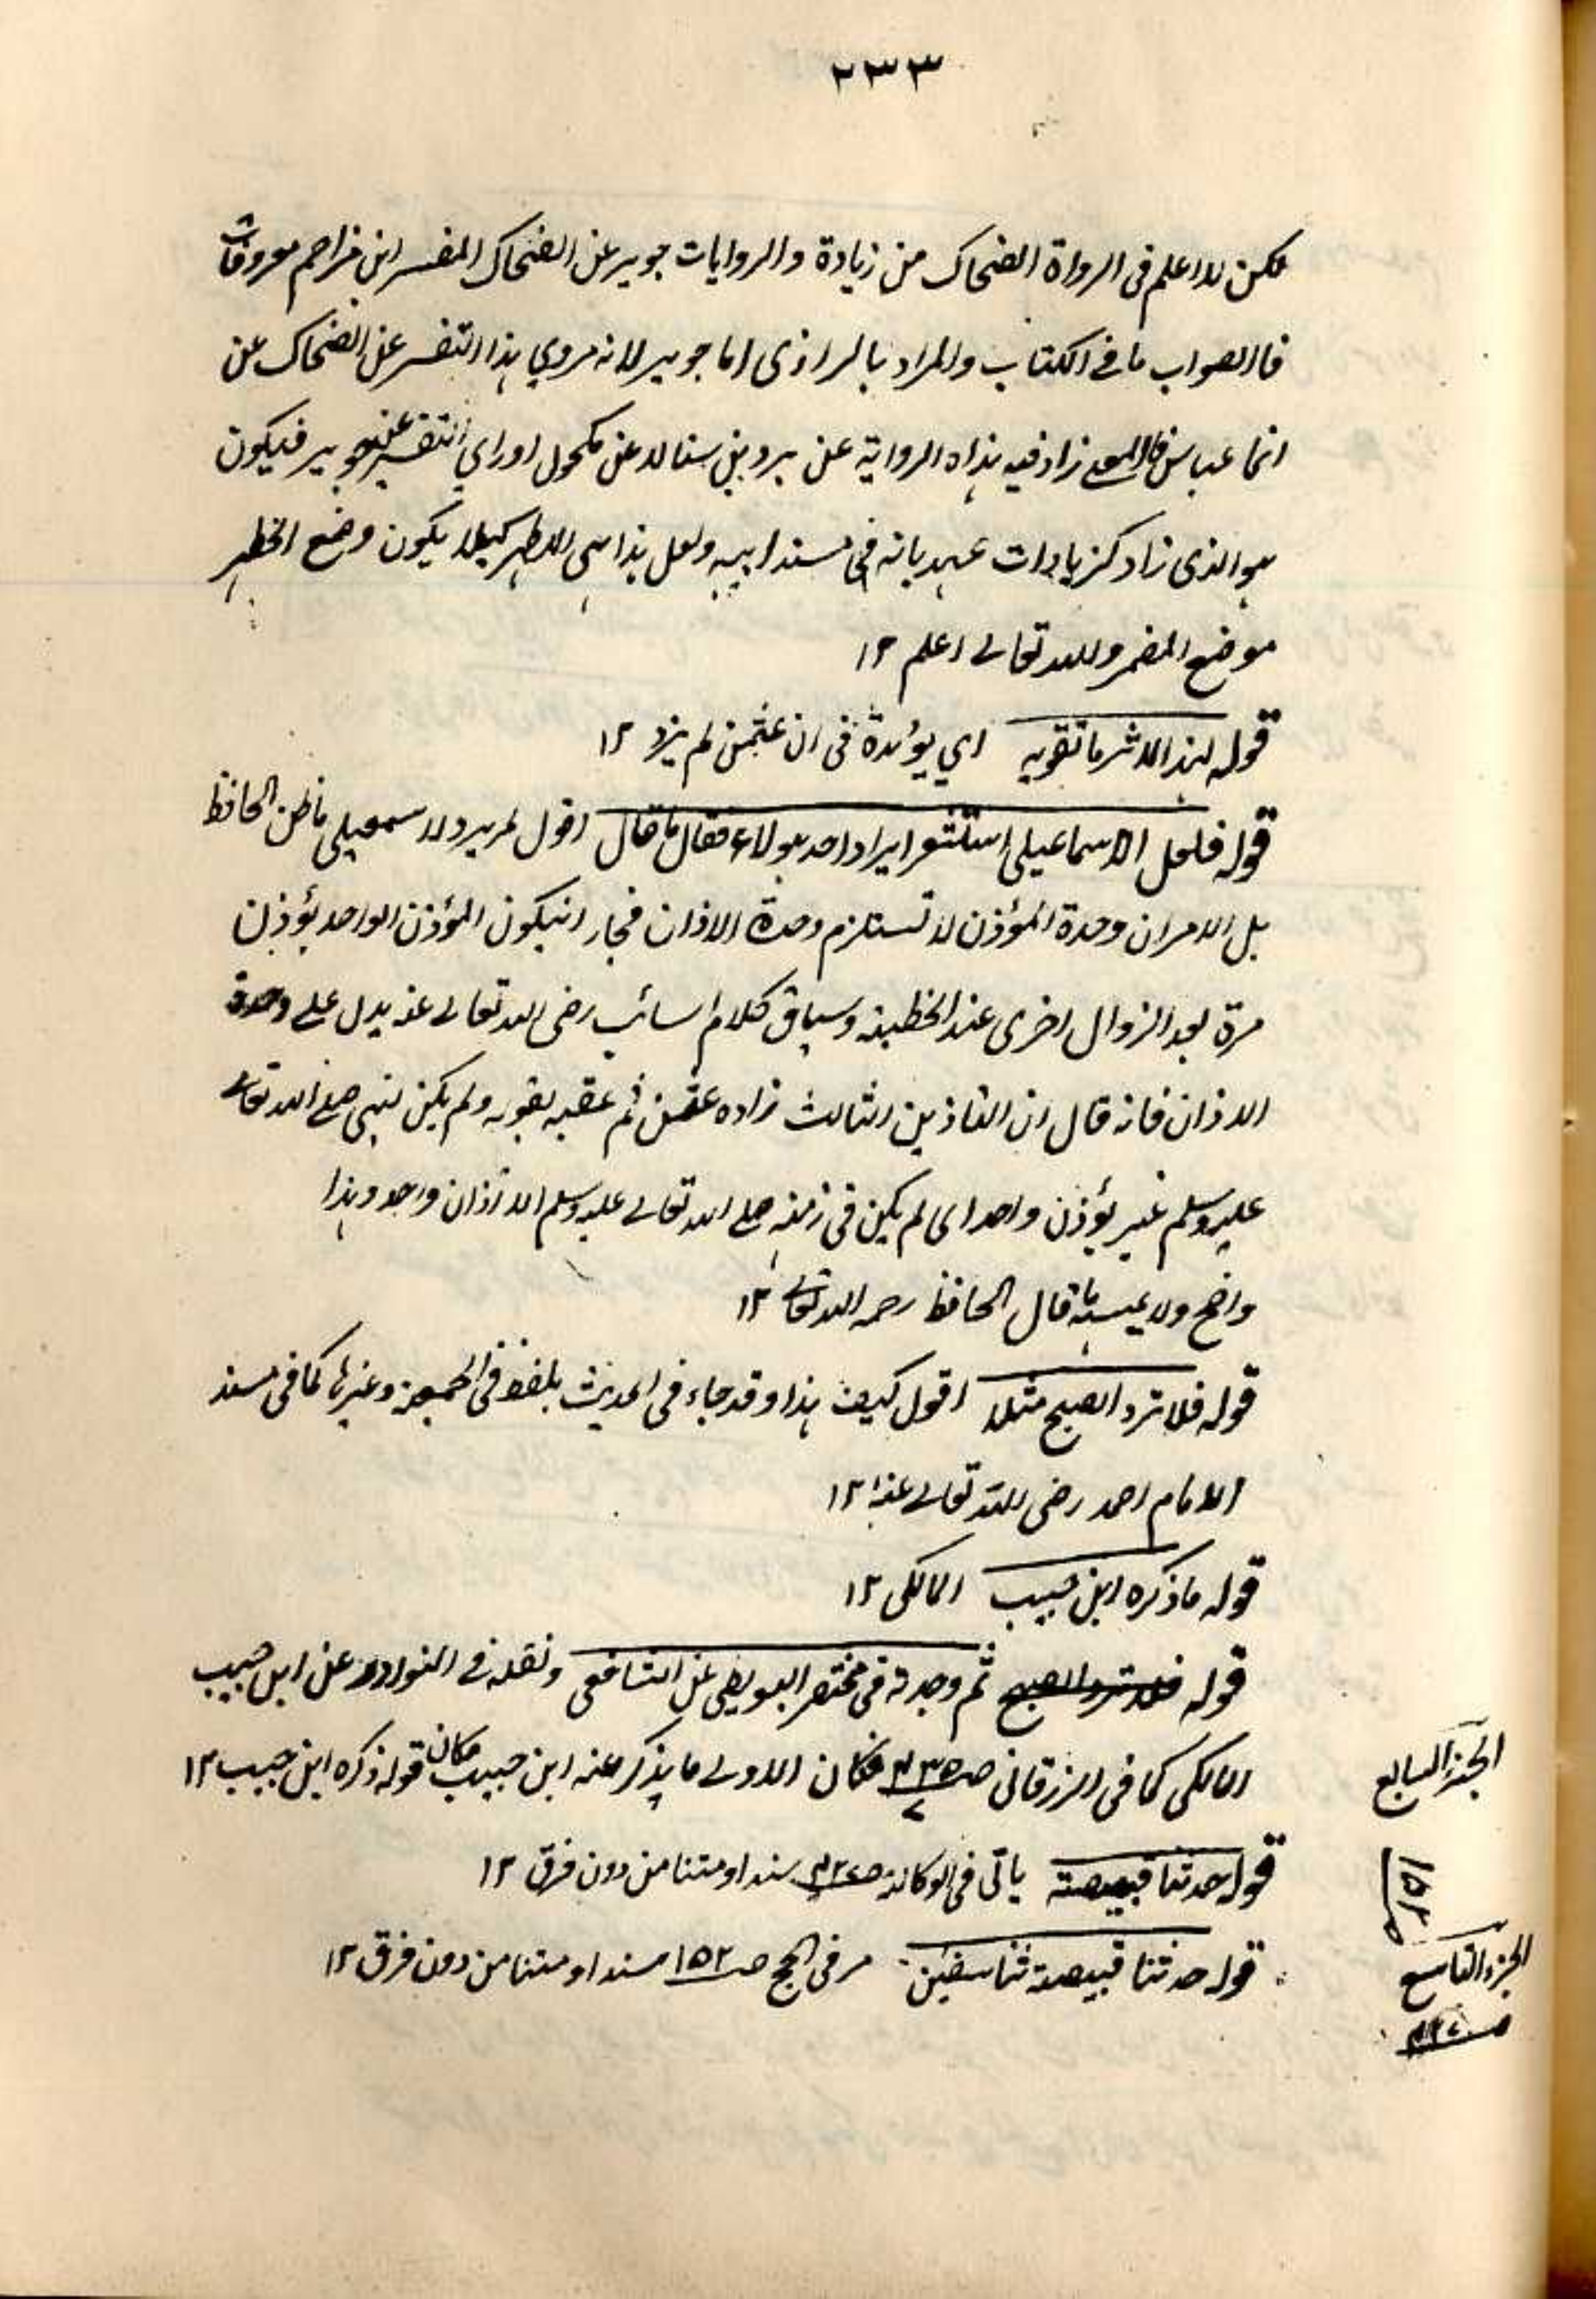 ٢٣٣
لكن لا اعلم فى الرواة الضحاك من زيادة والروايات جويبر عن الضحاك المفسر ابن مزاحم معروفات
فالصواب ما فى الكتاب والمراد بالراوى اما جويبر لانه مروي هذا التفسير عن الضحاك عن
زاد فيه هذاه الرواية عن برد بن سنان عن مكحول اوراي التفسير عن جويبر فيكون
هو الذى زاد كزيادات فى مسند ابيه ولعل هذا هى الاظهر كيلا يكون وضع الظهر
موضع المضمر والله تعالى اعلم ١٢
قوله لهذا الاثر ما تقويه اي يؤيدة فى ان عثمن لم يزد ١٢
قوله فلعل الاسماعيلى استشعر ايراد احد هولاء فقال ما قال اقول لم يرد الاسمعيلى ما ظن الحافظ
بل الامر ان وحدة المؤذن لا تستلزم وحدة الاذان فجاز انيكون المؤذن الواحد يؤذن
مرة بعد الزوال اخرى عند الخطبة وسياق كلام سائب رضى الله تعالى عنه يدل على وحدة
الاذان فانه قال ان التاذين الثالث زاده عثمن ثم عقبه بقوله ولم يكن لنبى صلى الله تعالى
عليه وسلم غير يؤذن واحد اى لم يكن فى زمنه صلى الله تعالى عليه وسلم الا اذان واحد وهذا
واضح ولا يمسه ما قال الحافظ رحمه الله تعالى ١٢
قوله فلا ترد الصبح مثلا اقول كيف هذا وقد جاء فى الحديث بلفظ فى الجمعة وغيرها كما فى مسند
الامام احمد رضى الله تعالى عنه ١٢
قوله ما ذكره ابن حبيب المالكى ١٢
قوله فلا ترد الصبح ثم وجدته فى مختصر البويطى عن الشافعى ونقله فى النوادر عن ابن حبيب
المالكى كما فى الزرقانى ص فكان الاولى ما يذكر عنه ابن حبيب مكان قوله ذكره ابن حبيب ١٢
الجزء السابع
قوله حدثنا قبيصة ياتى فى الوكالة سندا ومتنا من دون فرق ١٢
ص ١٥٢
قوله حدثنا قبيصة ثنا سفين مر فى الحج ص ١٥٢ سندا ومتنا من دون فرق ١٢
الجزء التاسع